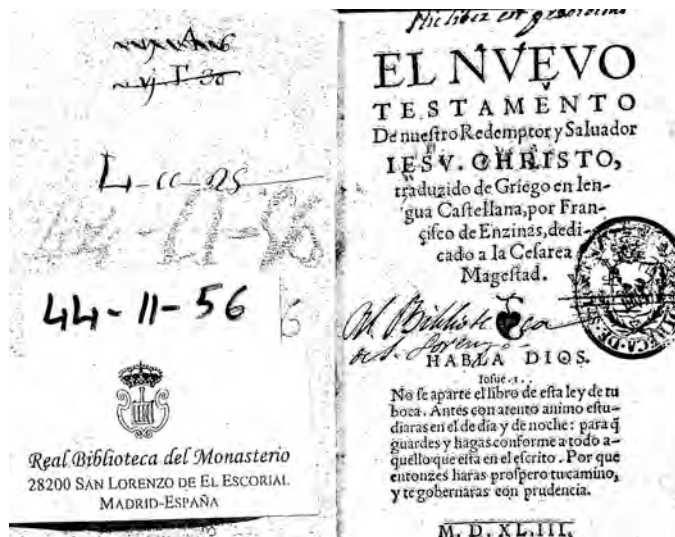 L-cc-25
44-11-56
44-11-56
Real Biblioteca del Monasterio
28200 SAN LORENZO DE EL ESCORIAL
MADRID-ESPAÑA
Hic liber est
EL NVEVO
TESTAMENTO
De nueſtro Redemptor y Saluador
IESV. CHRISTO,
traduzido de Griego en len-
gua Caſtellana, por Fran-
çiſco de Enzinas, dedi-
cado a la Ceſarea
Mageſtad.
HABLA DIOS.
Ioſue.1.
No ſe aparte el libro de eſta ley de tu
boca. Antes con atento animo eſtu-
diaras en el de dia y de noche: para q̃
guardes y hagas conforme a todo a-
quello que eſta en el eſcrito. Por que
entonzes haras proſpero tu camino,
y te gobernaras con prudencia.
M. D. XLIII.